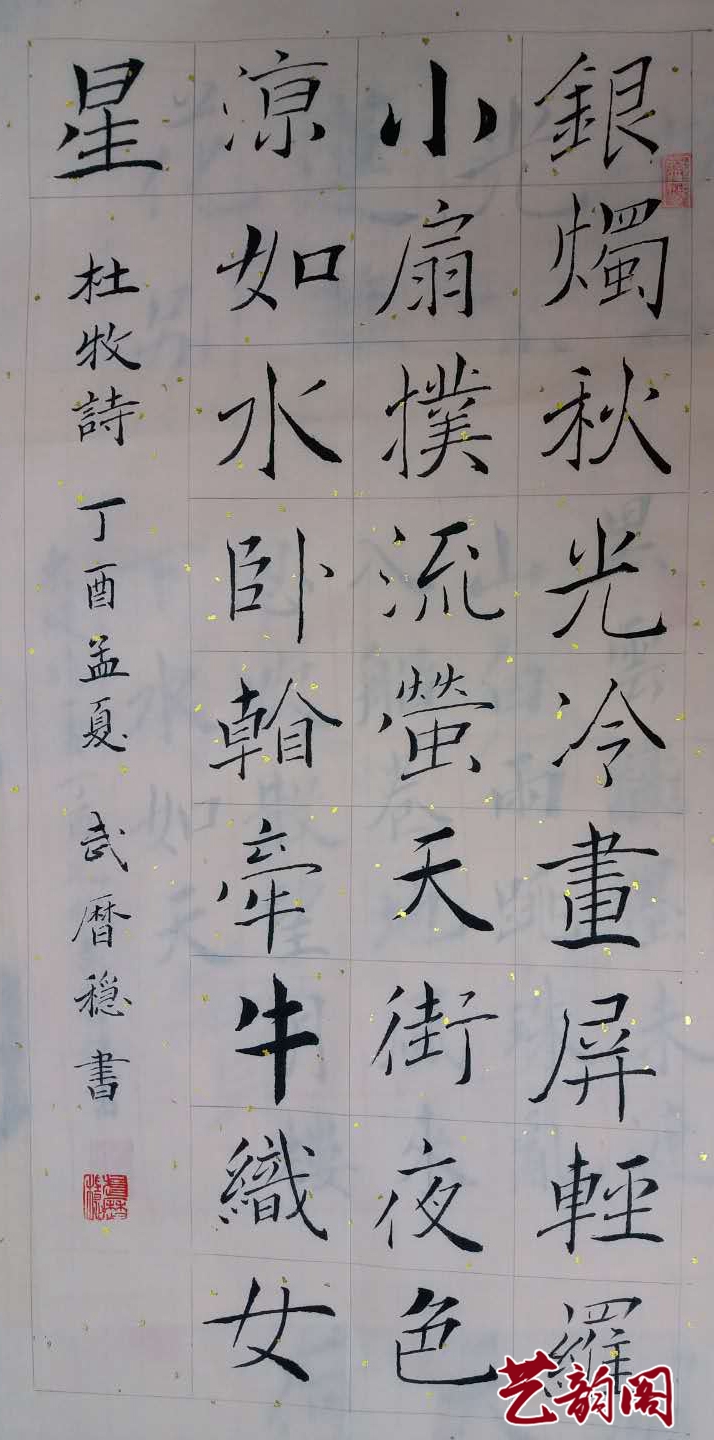 銀燭秋光冷畫屏輕羅
小扇撲流螢天街夜色
涼如水卧牽牛織女
星
杜牧詩 丁酉孟夏 武暦稳書
艺韵阁